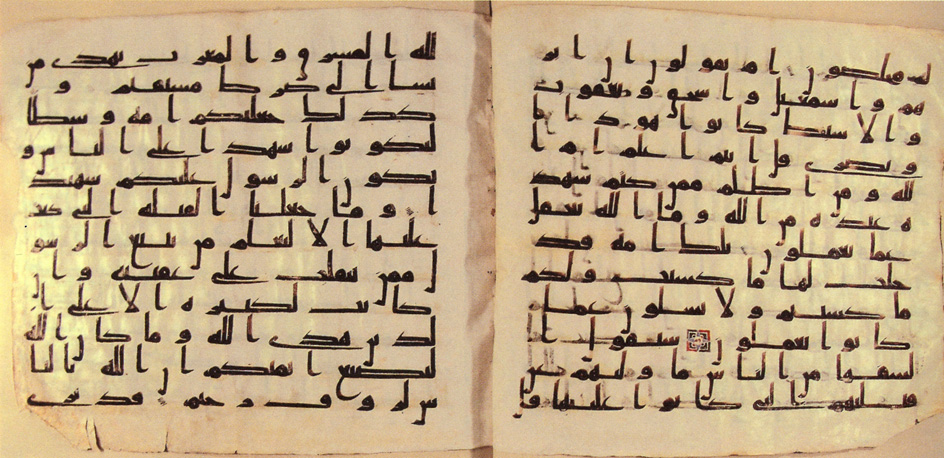 له مخلصون ام تقولون ان ابر
هم واسمعيل واسحق ويعقوب
والاسباط كانوا هودا ا
و نصرى قل انتم اعلم ام ا
لله ومن اظلم ممن كتم شهد
ة عنده من الله وما الله بغفل
عما تعملون تلك امة قد
خلت لها ما كسبت ولكم
ما كسبتم ولا تسلون عما
كانوا يعملون سيقول ا
لسفها من الناس ما وليهم عن
قبلتهم التي كانوا عليها قل
لله المشرق والمغرب يهدي من
يشا الى صرط مستقيم و
كذلك جعلنكم امة وسطا
لتكونوا شهدا على الناس و
يكون الرسول عليكم شهيد
ا وما جعلنا القبلة التي كنت
عليها الا لنعلم من يتبع الرسو
ل ممن ينقلب على عقبيه وان
كانت لكبيرة الا على ا
لذين هدى الله وما كان الله
ليضيع ايمنكم ان الله بالنا
س لروف رحيم قد نرى